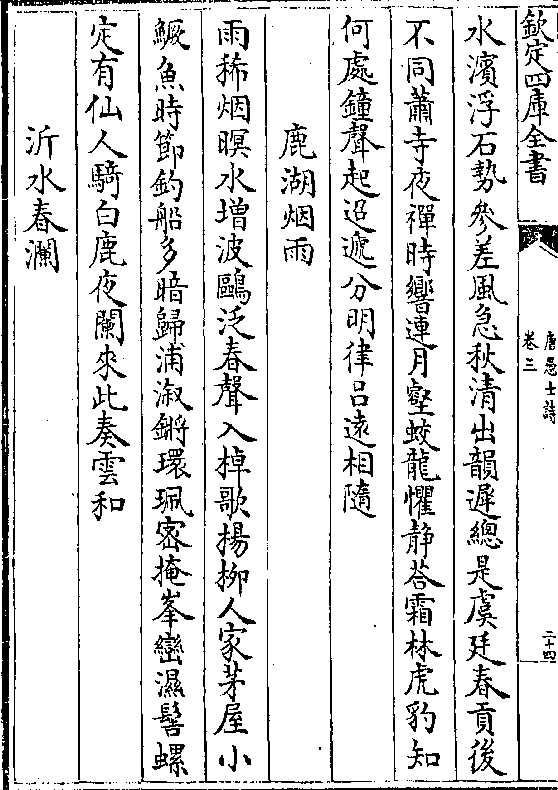 欽定四庫全書
唐愚士詩
卷三
二十四
水濵浮石勢參差風急秋清出韻遲總是虞廷春貢後
不同蕭寺夜禪時響連月壑蛟龍懼静荅霜林虎豹知
何處鐘聲起迢遞分明律吕遠相隨
鹿湖烟雨
雨稀烟暝水增波鷗泛春聲入棹歌楊栁人家茅屋小
鱖魚時節釣船多暗歸浦溆鏘環珮宻掩峯巒濕髻螺
定有仙人騎白鹿夜闌來此奏雲和
沂水春瀾